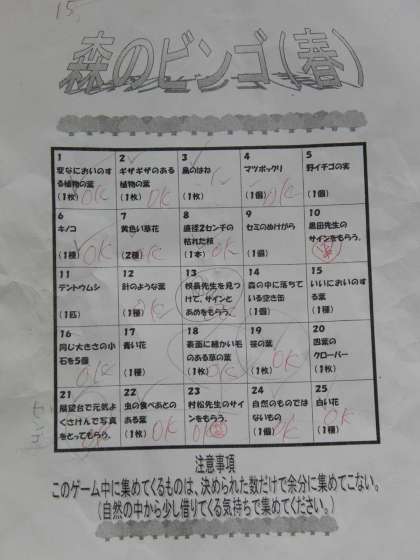 15
森のビンゴ(春)
1
変なにおいのす
る植物の葉
(1枚)
OK
2
ギザギザのある
植物の葉
(1枚)
OK
3
鳥のはね
(1枚)
4
マツボックリ
(1個)
OK
5
野イチゴの実
(1個)
6
キノコ
(1種)
OK
7
黄色い草花
(2種)
OK
8
直径2センチの
枯れた枝
(1本)
OK
9
セミのぬけがら
(1個)
10
黒田先生の
サインをもらう。
11
テントウムシ
(1匹)
12
針のような葉
(1種)
OK
13
校長先生を見つ
けて、サインと
あめをもらう。
14
森の中に落ち
ている空き缶
(1個)
15
いいにおいのす
る葉
(1種)
16
同じ大きさの小
石を5個
OK
17
青い花
(1種)
18
表面に細かい毛
のある草の葉
(1枚)
OK
19
笹の葉
(1枚)
OK
20
四葉の
クローバー
(1枚)
21
展望台で元気よ
くさけんで写真
をとってもらう。
22
虫の食べあとの
ある葉
(1枚)
OK
23
村松先生のサイ
ンをもらう。
OK
24
自然のものでは
ないもの
(1個)
OK
25
白い花
(1種)
OK
ビンゴ
注意事項
このゲーム中に集めてくるものは、決められた数だけで余分に集めてこない。
(自然の中から少し借りてくる気持ちで集めてください。)